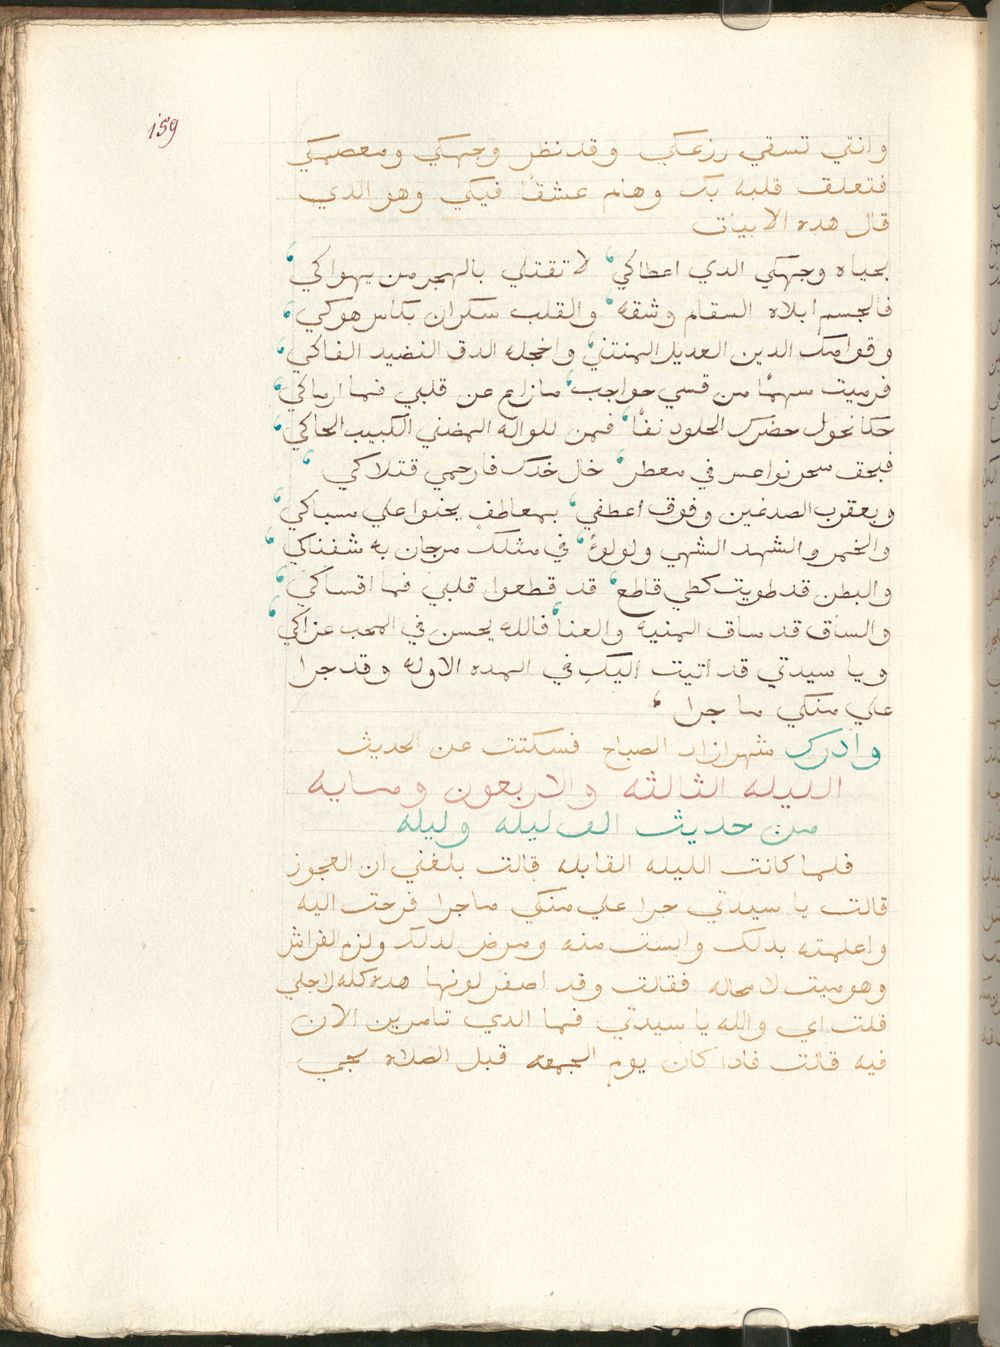 159
وانتي تسقي زرعكي وقد نظر وجهكي ومعصمكي
فتعلق قلبه بك وهام عشقًا فيكي وهو الدي
قال هده الابيات
بحياه وجهكي الدي اعطاكي، لا تقتلي بالهجر من يهواكي،
فالجسم ابلاه السقام وشقه، والقلب سكران بكاس هوكي،
وقوامك الدين العديل المنتني، واخجله الدق النضيد الفاكي،
فرميت سهمًا من قسي حواجب، مازاع عن قلبي فما ارماكي،
حكا نحول حضرك الحلود نفًا، فمن للواله المضني الكييب الحاكي،
فبحق سحر نواعس في معطر، خال خدك فارحمي قتلاكي،
وبعقرب الصدغين وفوق اعطفي، بمعاطف يحنوا علي مسباكي،
والخمر والشهد الشهي ولولوءٌ، في مثلك مرجان به شفناكي،
والبطن قد طويت كطي قاطع، قد قطعوا قلبي فما اقساكي،
والساق قد ساق المنيه والعنا، فالله يحسن في المحب عزاكي،
ويا سيدتي قد اتيت اليك في المده الاوله وقد جرا
علي منكي ما جرا،
وادرك شهرازاد الصباح فسكتت عن الحديث
الليله الثالثه والاربعون ومايه
من حديث الف ليله وليله
فلما كانت الليله القابله قالت بلغني ان العجوز
قالت يا سيدتي جرا علي منكي ماجرا فرحت اليه
واعلمته بدلك وايست منه ومرض لدلك ولزم الفراش
وهو ميت لا محاله فقالت وقد اصفر لونها هده كله لاجلي
قلت اي والله يا سيدتي فما الدي تامرين الان
فيه قالت فادا كان يوم الجمعه قبل الصلاه يجي